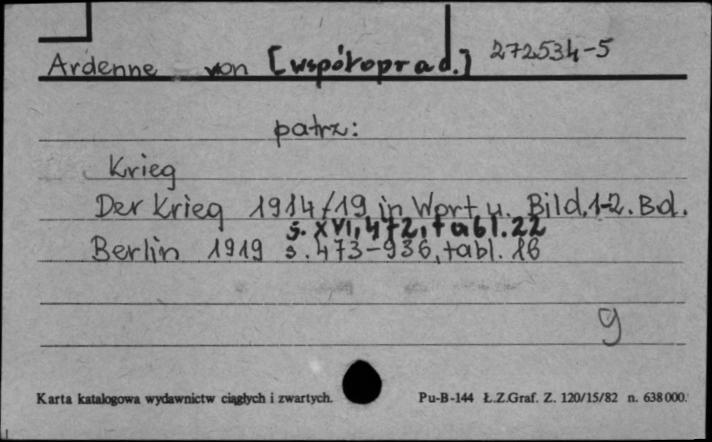 Ardenne von [współoprad.] 272534-5
patrz:
Krieg
Der Krieg 1914/19 in Wort u. Bild. 1-2. Bd.
s. XVI, 472, tabl. 22
Berlin 1919 s. 473-936, tabl. 16
9
Karta katalogowa wydawnictw ciągłych i zwartych. Pu-B-144 Ł.Z.Graf. Z. 120/15/82 n. 638000.